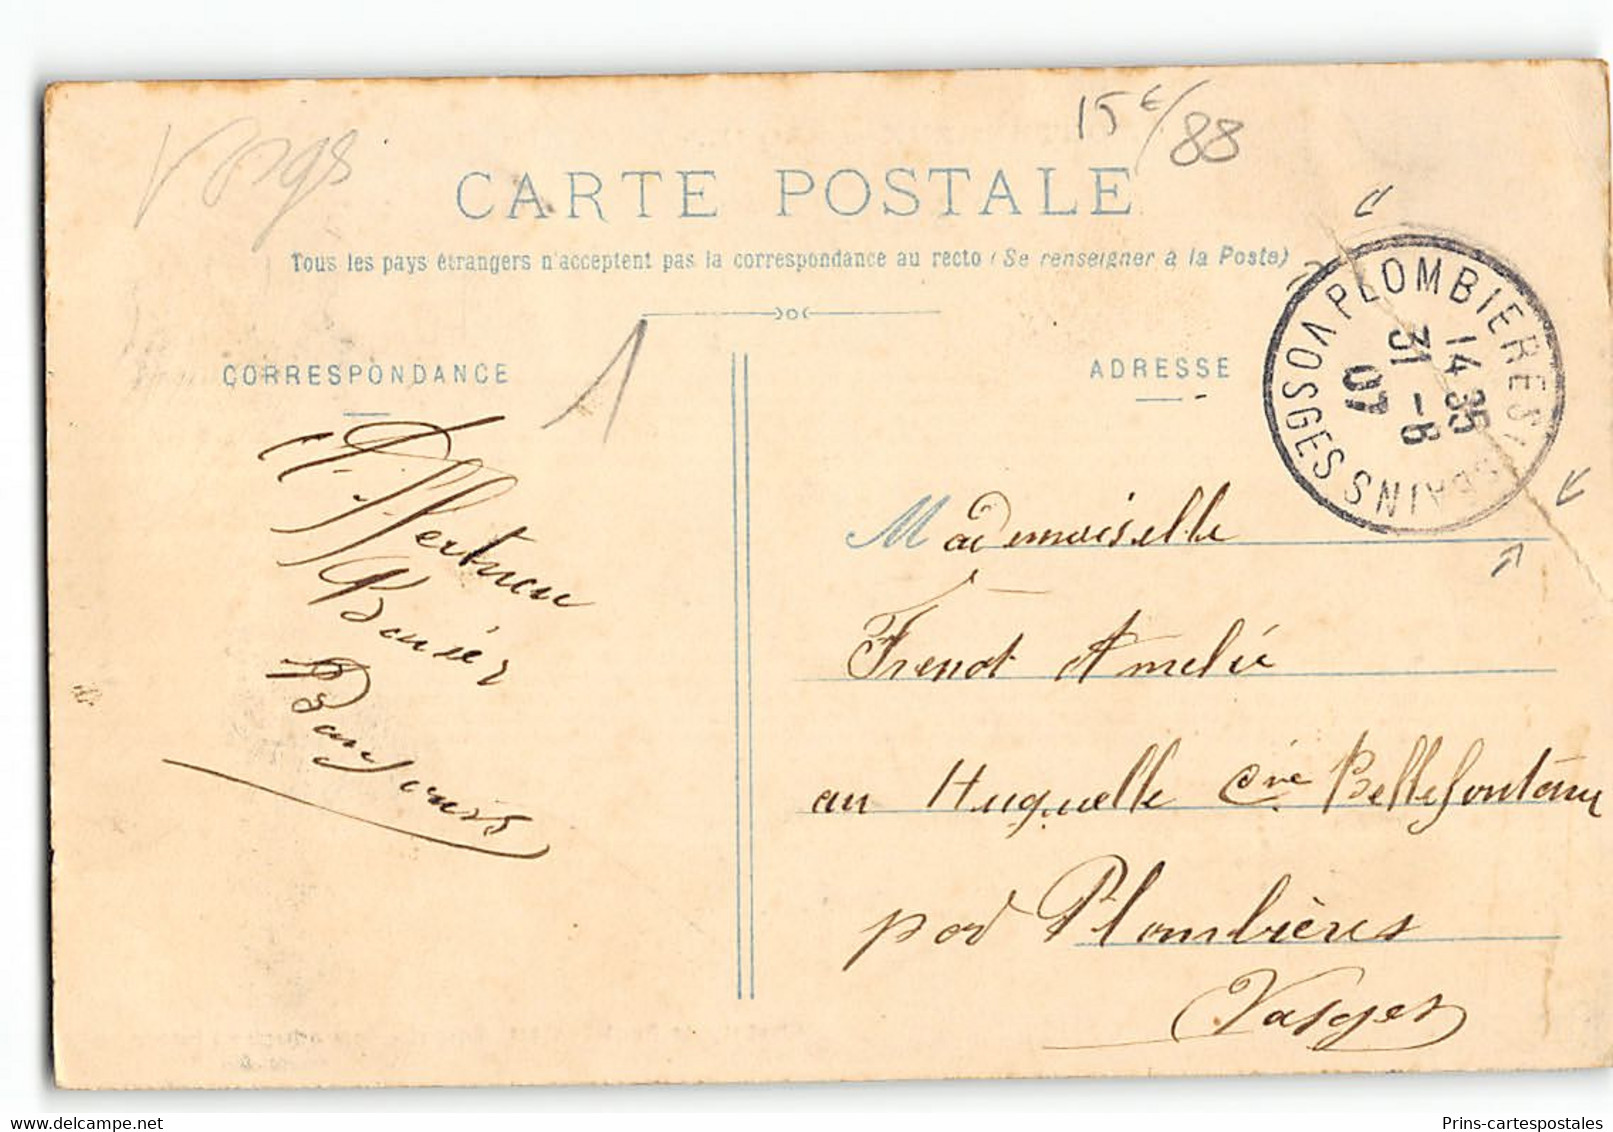 Vosges
15€/88
CARTE POSTALE
Tous les pays étrangers n'acceptent pas la correspondance au recto (Se renseigner à la Poste)
1
CORRESPONDANCE
ADRESSE
PLOMBIERES LES BAINS VOSGES
14 35
31 - 8
07
Bonjours
Mademoiselle
Frenot Amelie
au Huguelle Cne Bellefontaine
par Plombières
Vosges
Prins-cartespostales